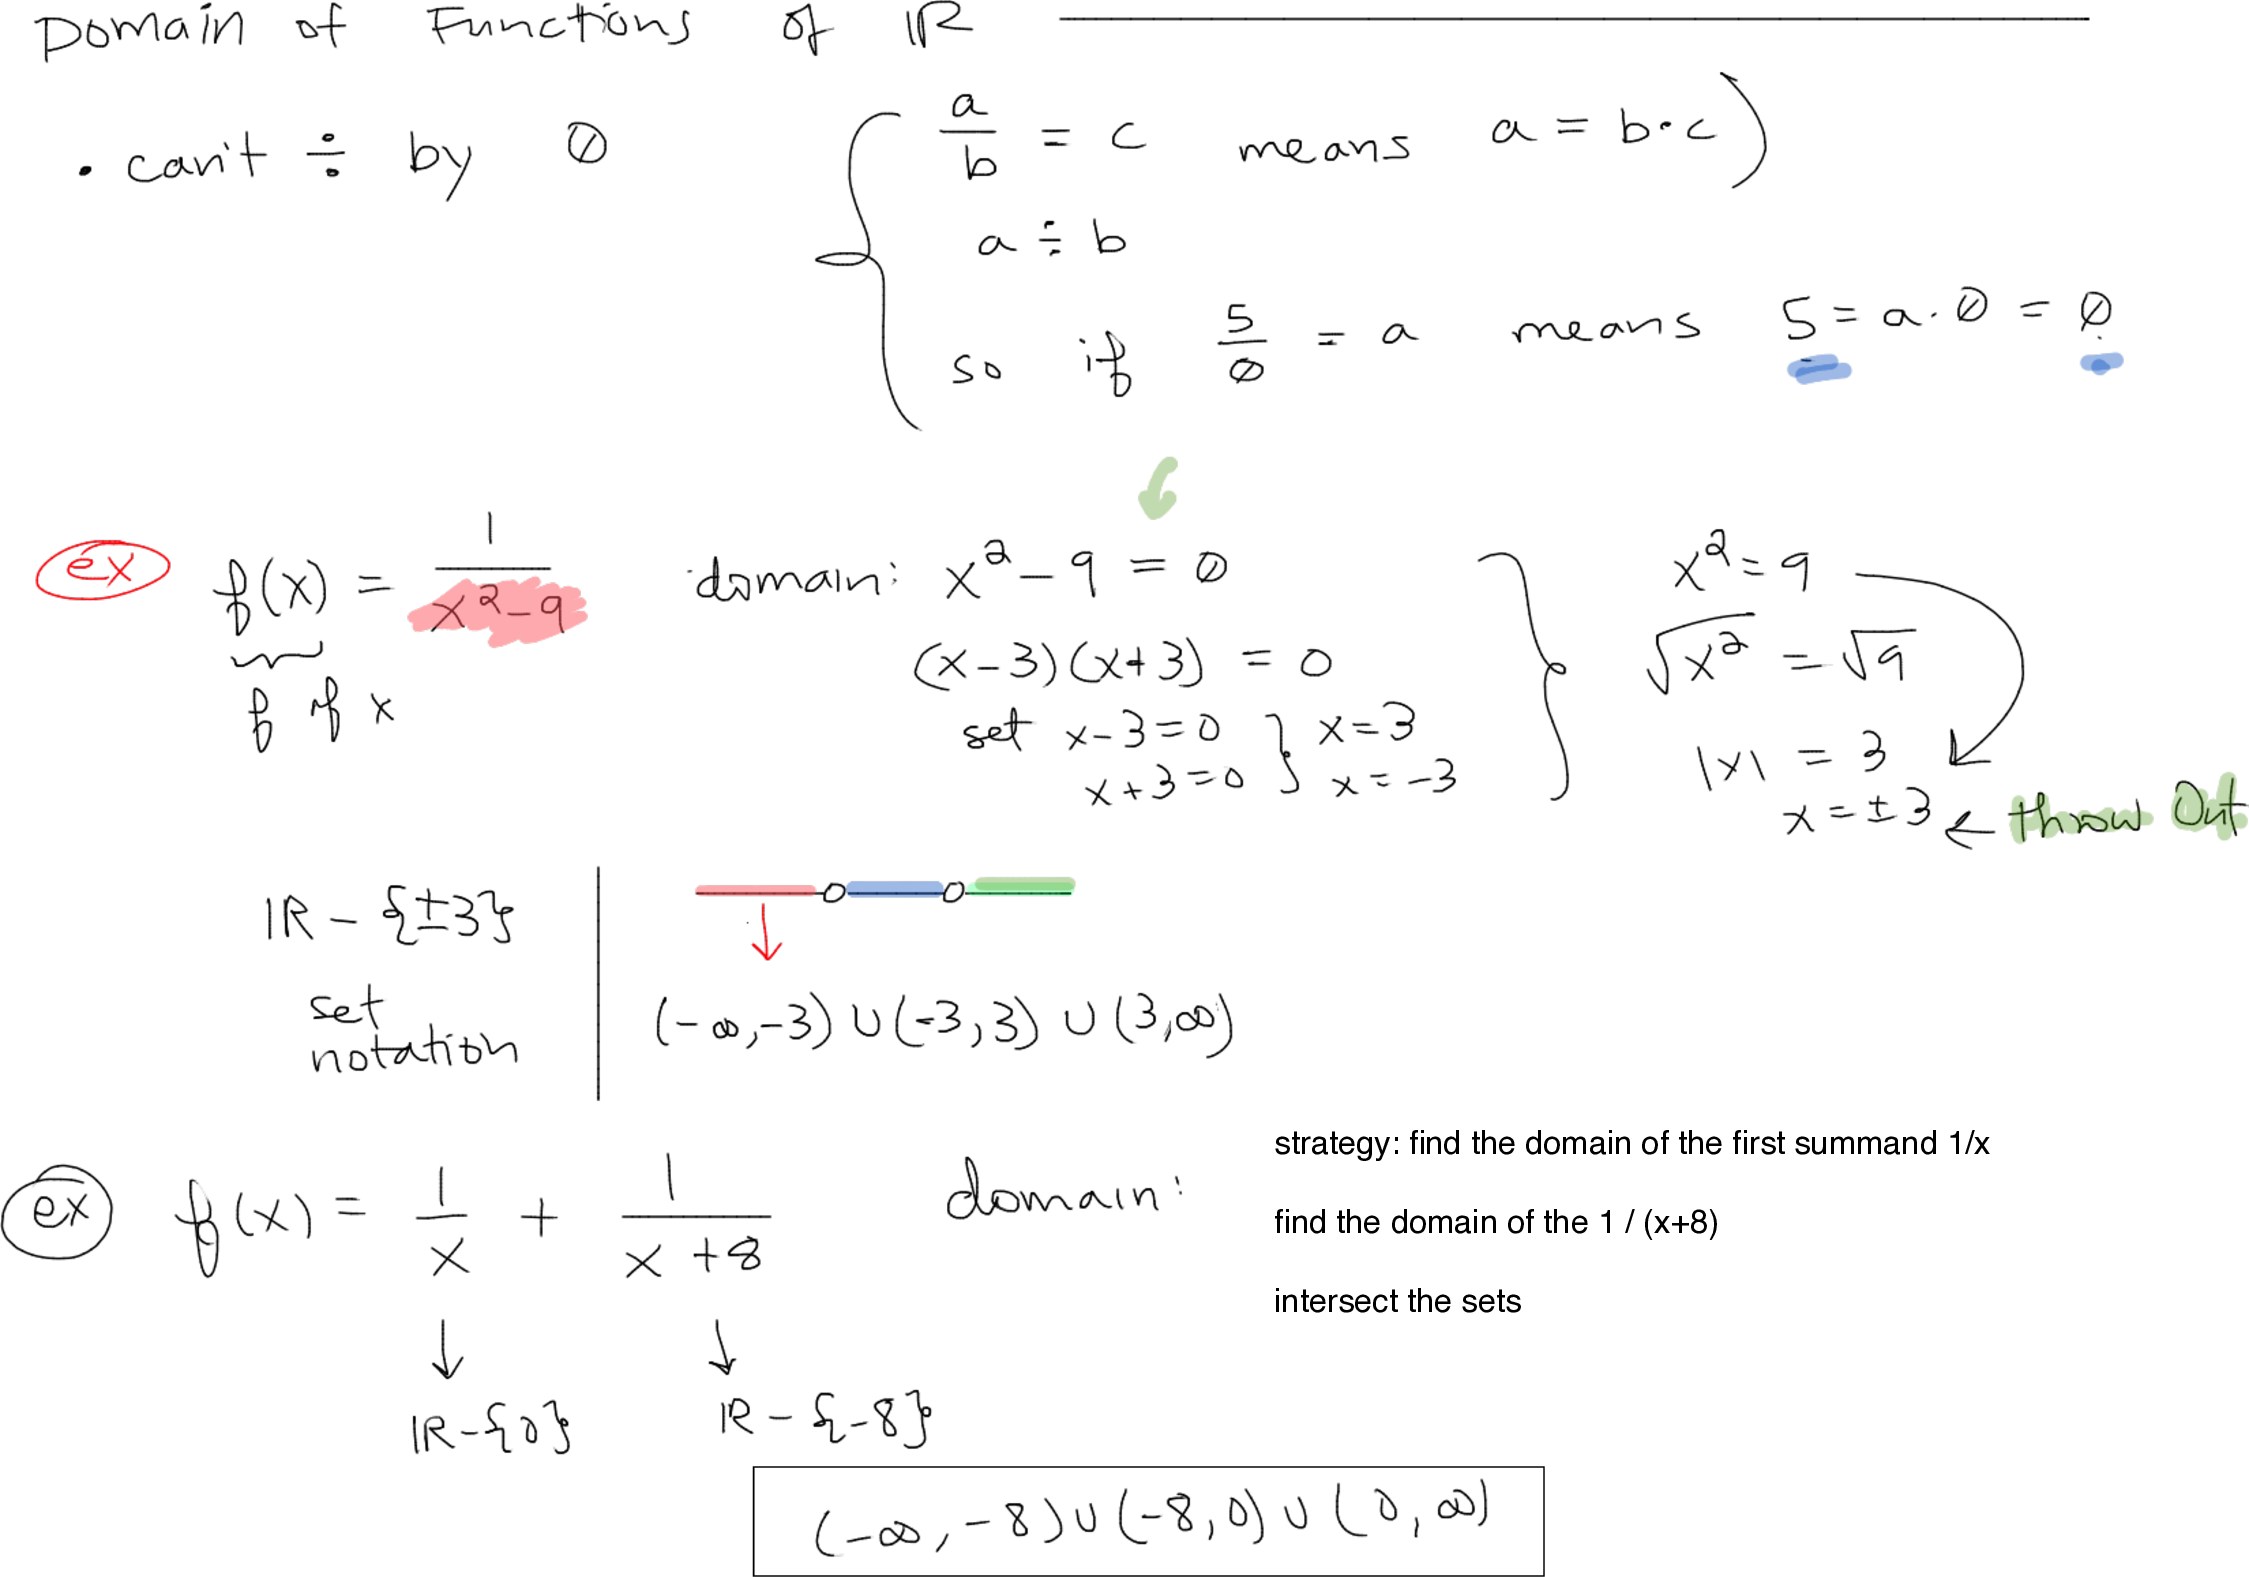 Domain of Functions of ℝ
• can't ÷ by 0
a/b = c means a = b·c)
a ÷ b
so if 5/0 = a means 5 = a·0 = 0
ex f(x) = 1/(x²-9) domain: x²-9 = 0
f of x
(x-3)(x+3) = 0
set x-3=0 } x=3
x+3=0 } x=-3
x²=9
√x² = √9
|x| = 3
x=±3 ← throw Out
ℝ - {±3}
set
notation
(-∞,-3) ∪ (-3,3) ∪ (3,∞)
ex f(x) = 1/x + 1/(x+8) domain:
strategy: find the domain of the first summand 1/x
find the domain of the 1 / (x+8)
intersect the sets
↓ ↓
ℝ-{0} ℝ-{-8}
(-∞,-8) ∪ (-8,0) ∪ (0,∞)